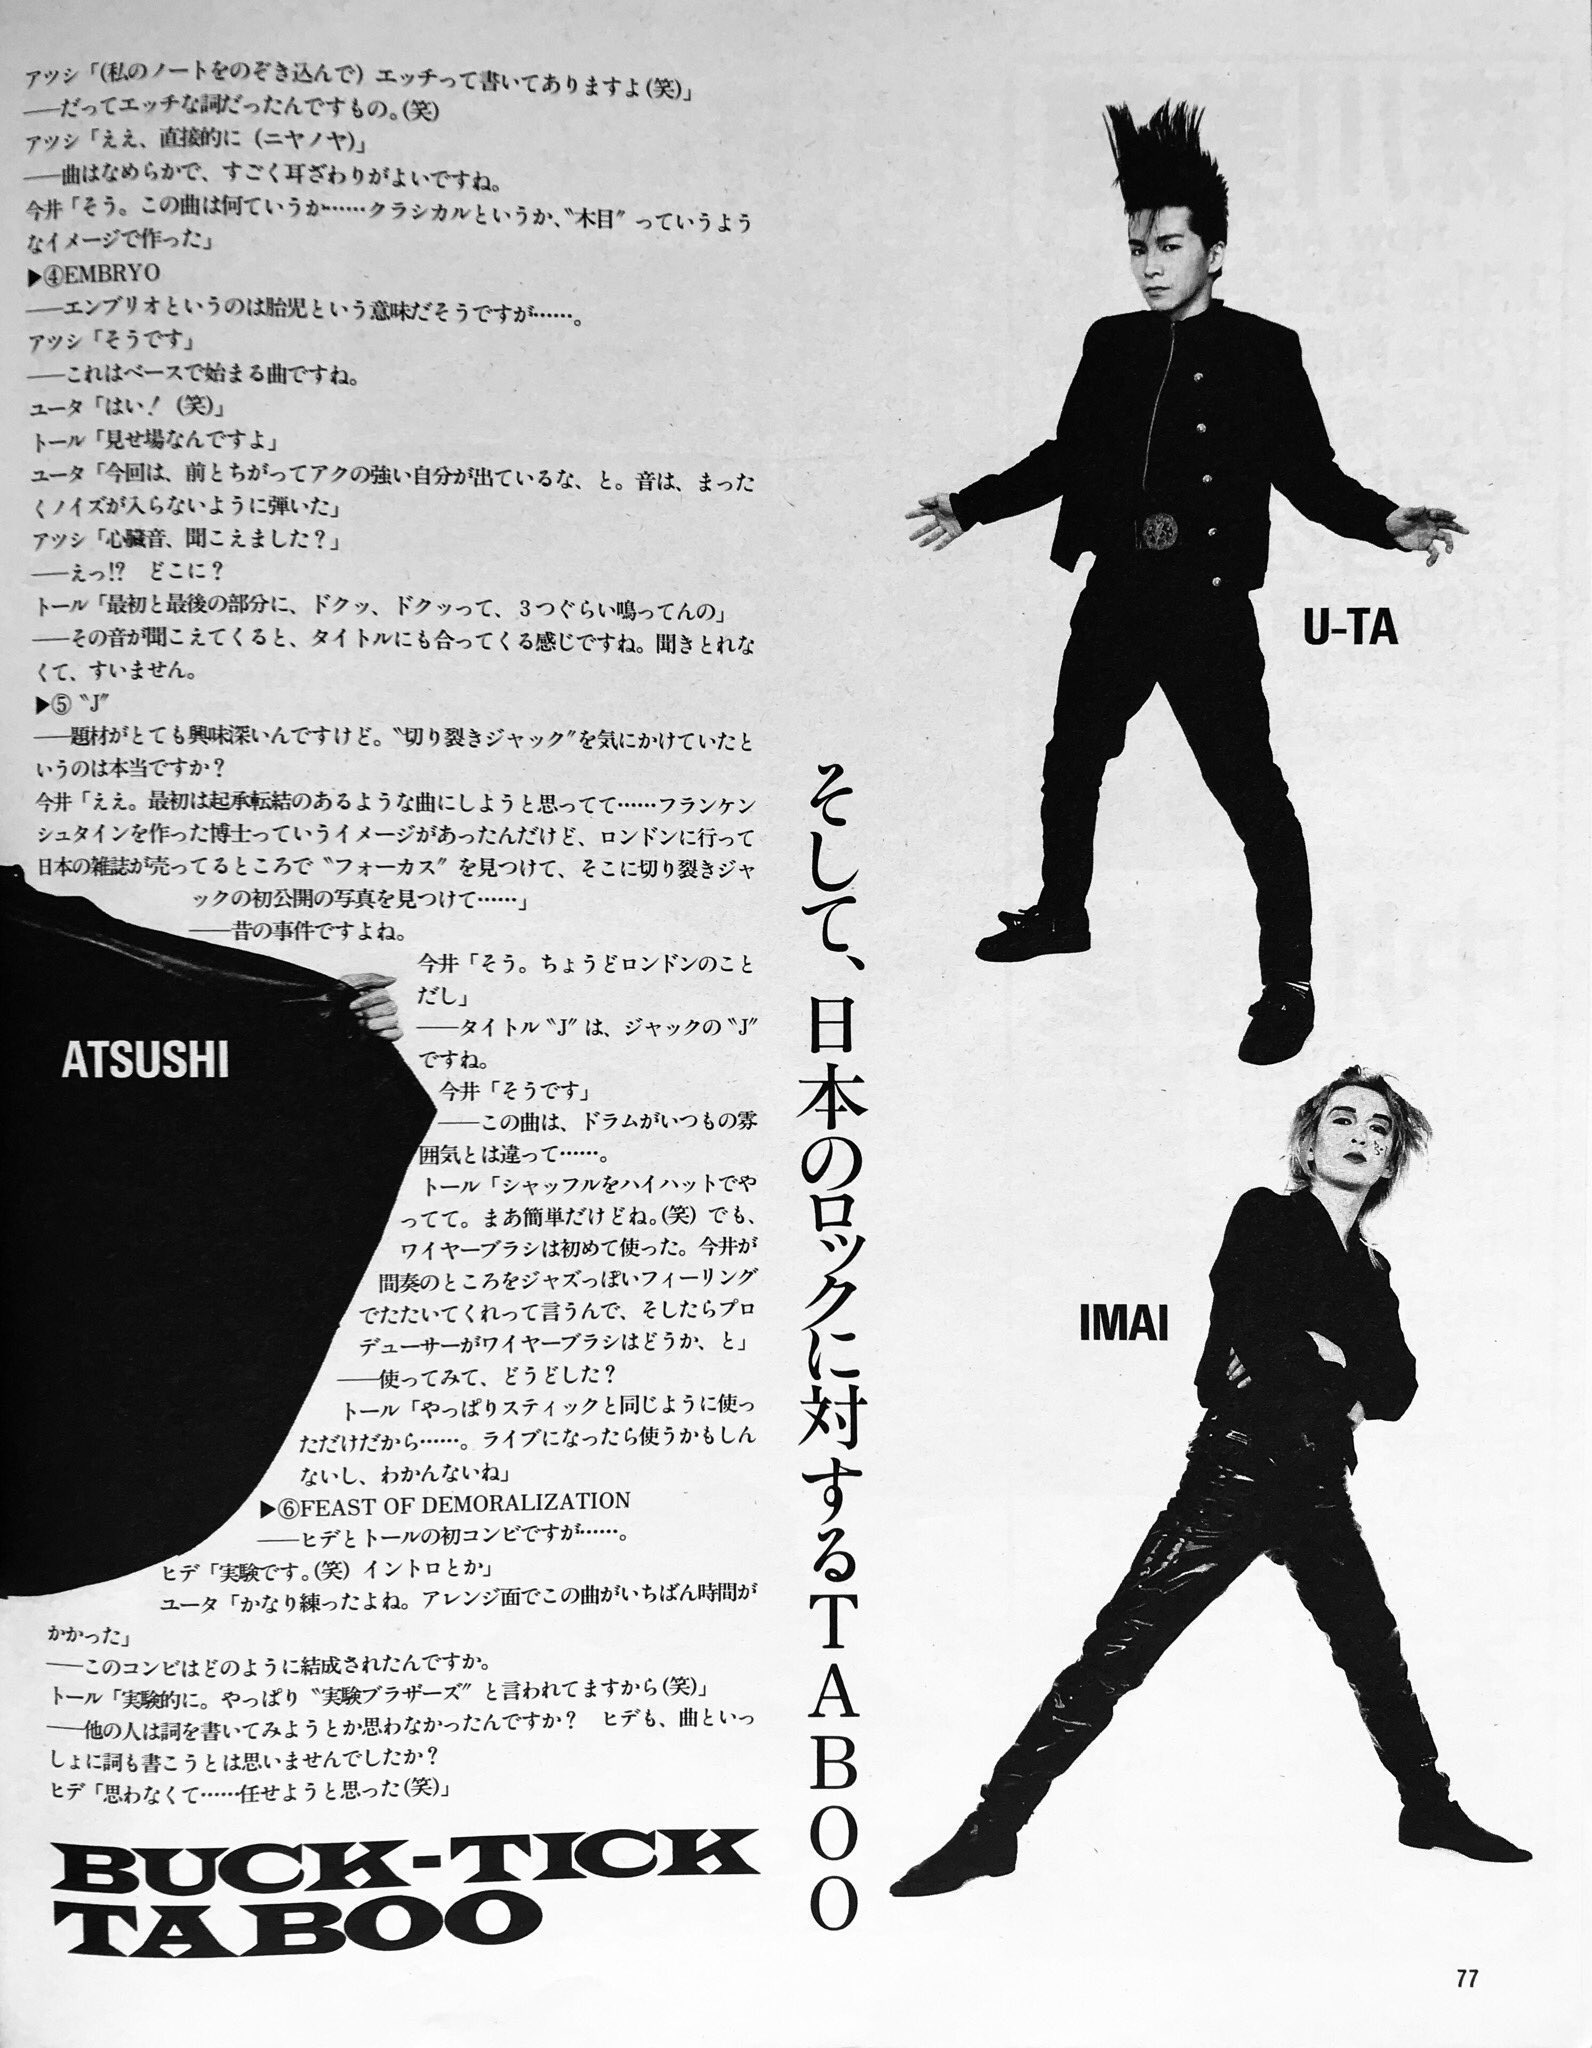 アツシ「(私のノートをのぞき込んで) エッチって書いてありますよ(笑)」
――だってエッチな詞だったんですもの。(笑)
アツシ「ええ、直接的に (ニヤノヤ)」
――曲はなめらかで、すごく耳ざわりがよいですね。
今井「そう。この曲は何ていうか……クラシカルというか、〝木目〟っていうよう
なイメージで作った」
▶④EMBRYO
――エンブリオというのは胎児という意味だそうですが……。
アツシ「そうです」
――これはベースで始まる曲ですね。
ユータ「はい! (笑)」
トール「見せ場なんですよ」
ユータ「今回は、前とちがってアクの強い自分が出ているな、と。音は、まった
くノイズが入らないように弾いた」
アツシ「心臓音、聞こえました?」
――えっ!? どこに?
トール「最初と最後の部分に、ドクッ、ドクッって、3つぐらい鳴ってんの」
――その音が聞こえてくると、タイトルにも合ってくる感じですね。聞きとれな
くて、すいません。
▶⑤〝J〟
――題材がとても興味深いんですけど。〝切り裂きジャック〟を気にかけていたと
いうのは本当ですか?
今井「ええ。最初は起承転結のあるような曲にしようと思ってて……フランケン
シュタインを作った博士っていうイメージがあったんだけど、ロンドンに行って
日本の雑誌が売ってるところで〝フォーカス〟を見つけて、そこに切り裂きジャ
ックの初公開の写真を見つけて……」
――昔の事件ですよね。
今井「そう。ちょうどロンドンのこと
だし」
――タイトル〝J〟は、ジャックの〝J〟
ですね。
今井「そうです」
――この曲は、ドラムがいつもの雰
囲気とは違って……。
トール「シャッフルをハイハットでや
ってて。まあ簡単だけどね。(笑) でも、
ワイヤーブラシは初めて使った。今井が
間奏のところをジャズっぽいフィーリング
でたたいてくれって言うんで、そしたらプロ
デューサーがワイヤーブラシはどうか、と」
――使ってみて、どうどした?
トール「やっぱりスティックと同じように使っ
ただけだから……。ライブになったら使うかもしん
ないし、わかんないね」
▶⑥FEAST OF DEMORALIZATION
――ヒデとトールの初コンビですが……。
ヒデ「実験です。(笑) イントロとか」
ユータ「かなり練ったよね。アレンジ面でこの曲がいちばん時間が
かかった」
――このコンビはどのように結成されたんですか。
トール「実験的に。やっぱり〝実験ブラザーズ〟と言われてますから(笑)」
――他の人は詞を書いてみようとか思わなかったんですか? ヒデも、曲といっ
しょに詞も書こうとは思いませんでしたか?
ヒデ「思わなくて……任せようと思った(笑)」
ATSUSHI
そして、日本のロックに対するTABOO
U-TA
IMAI
BUCK-TICK
TABOO
77